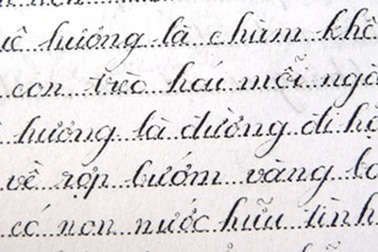 uê hương là chùm khế
con trèo hái mỗi ngà
hương là đường đi họ
về rợp bướm vàng ba
có non nước hữu tình